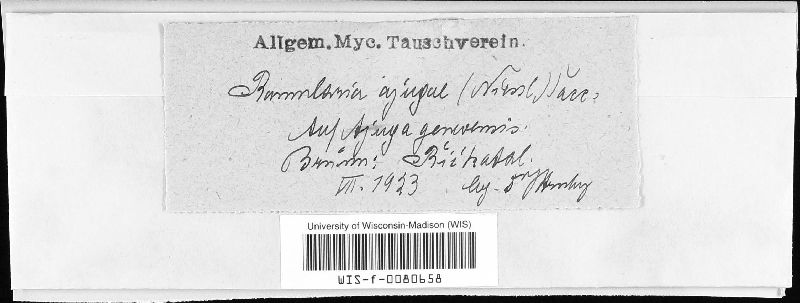 Allgem. Myc. Tauschverein.
Ramularia ajugae (Niessl) Sacc.
Auf Ajuga genevensis.
Brünn: Řičkatal.
VII. 1923 leg. Dr Hruby
University of Wisconsin-Madison (WIS)
WIS-f-0080658